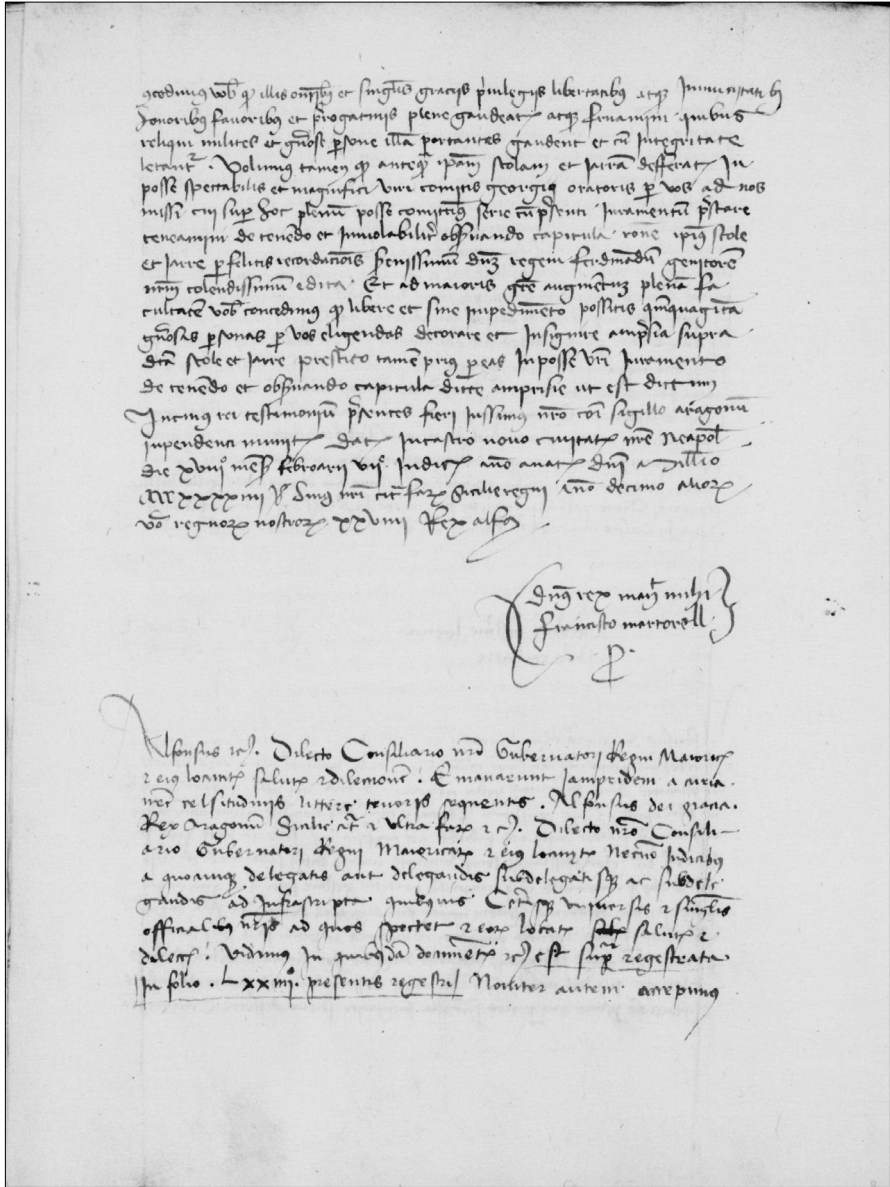 concedimus vob qp illis omibus et singlis graciis priuilegiis libertatibus atq Inmunitatibus
honoribus fauoribus et prerogatiuis plene gaudeatis atq fruamini quibus
reliqui milites et gnose persone illa portantes gaudent et cu Integritate
letant . Volumus tamen qp anteq ipam stolam et Jarra defferatis In
posse spectabilis et magnifici viri comitis georgii oratoris per vos ad nos
missi cui super hoc plenu posse comittimus serie cu psenti Juramentu prestare
teneamini de tenendo et Inuiolabilit obseruando capitula rone ipius stole
et Jarre per felicis recordacionis serenissimum dnum regem ferdinadu genitore
nrm colendissimum edita . Et ad maioris gre augmentum plena fa
cultatem vob concedimus qp libere et sine impedimento possitis quinquaginta
gnosas personas per vos eligendas decorare et Insignire amprisia supra
dta stole et Jarre prestito tame prius per eas In posse vri Juramento
de tenendo et obseruando capitula dicte amprisie ut est dictum
In cuius rei testimoniu psentes fieri Jussimus nro coi sigillo aragonum
inpendenti munitas dat In castro nouo ciuitatis nre Neapol
die xviiii mens febroarii vii Indicis ano a natis dni Millio
CCCCxxxxiiii regni nri cit farum Sicilie regni Anno decimo aliorum
vo regnorum nostrorum xxviiii Rex alfon
dnus rex mant mihi
francisco martorell
P
Alfonsus etc. Dilecto Consiliario nro Gubernatori Regni Maioric
et eius locumt salut et dileccione . Emanarunt Jampridem a curia
nre celsitudinis littere tenoris sequentis . Alfonsus dei gracia
Rex Aragonu Sicilie cit et ultra farum etc. Dilecto nro Consili
ario Gubernatori Regni Maioricarum et eius locumt Necno Judicibus
a quocunq delegatis aut delegandis subdelegatisq ac subdele
gandis ad Infrascripta quibusuis Ceterisq vniuersis et singlis
officialibus nris ad quos spectet et eorum locat salut et
dilecc . Vidimus In quibusda documetis etc est supra registrata
In folio . Lxxiiii . presentis regestri Nouiter autem accepimus